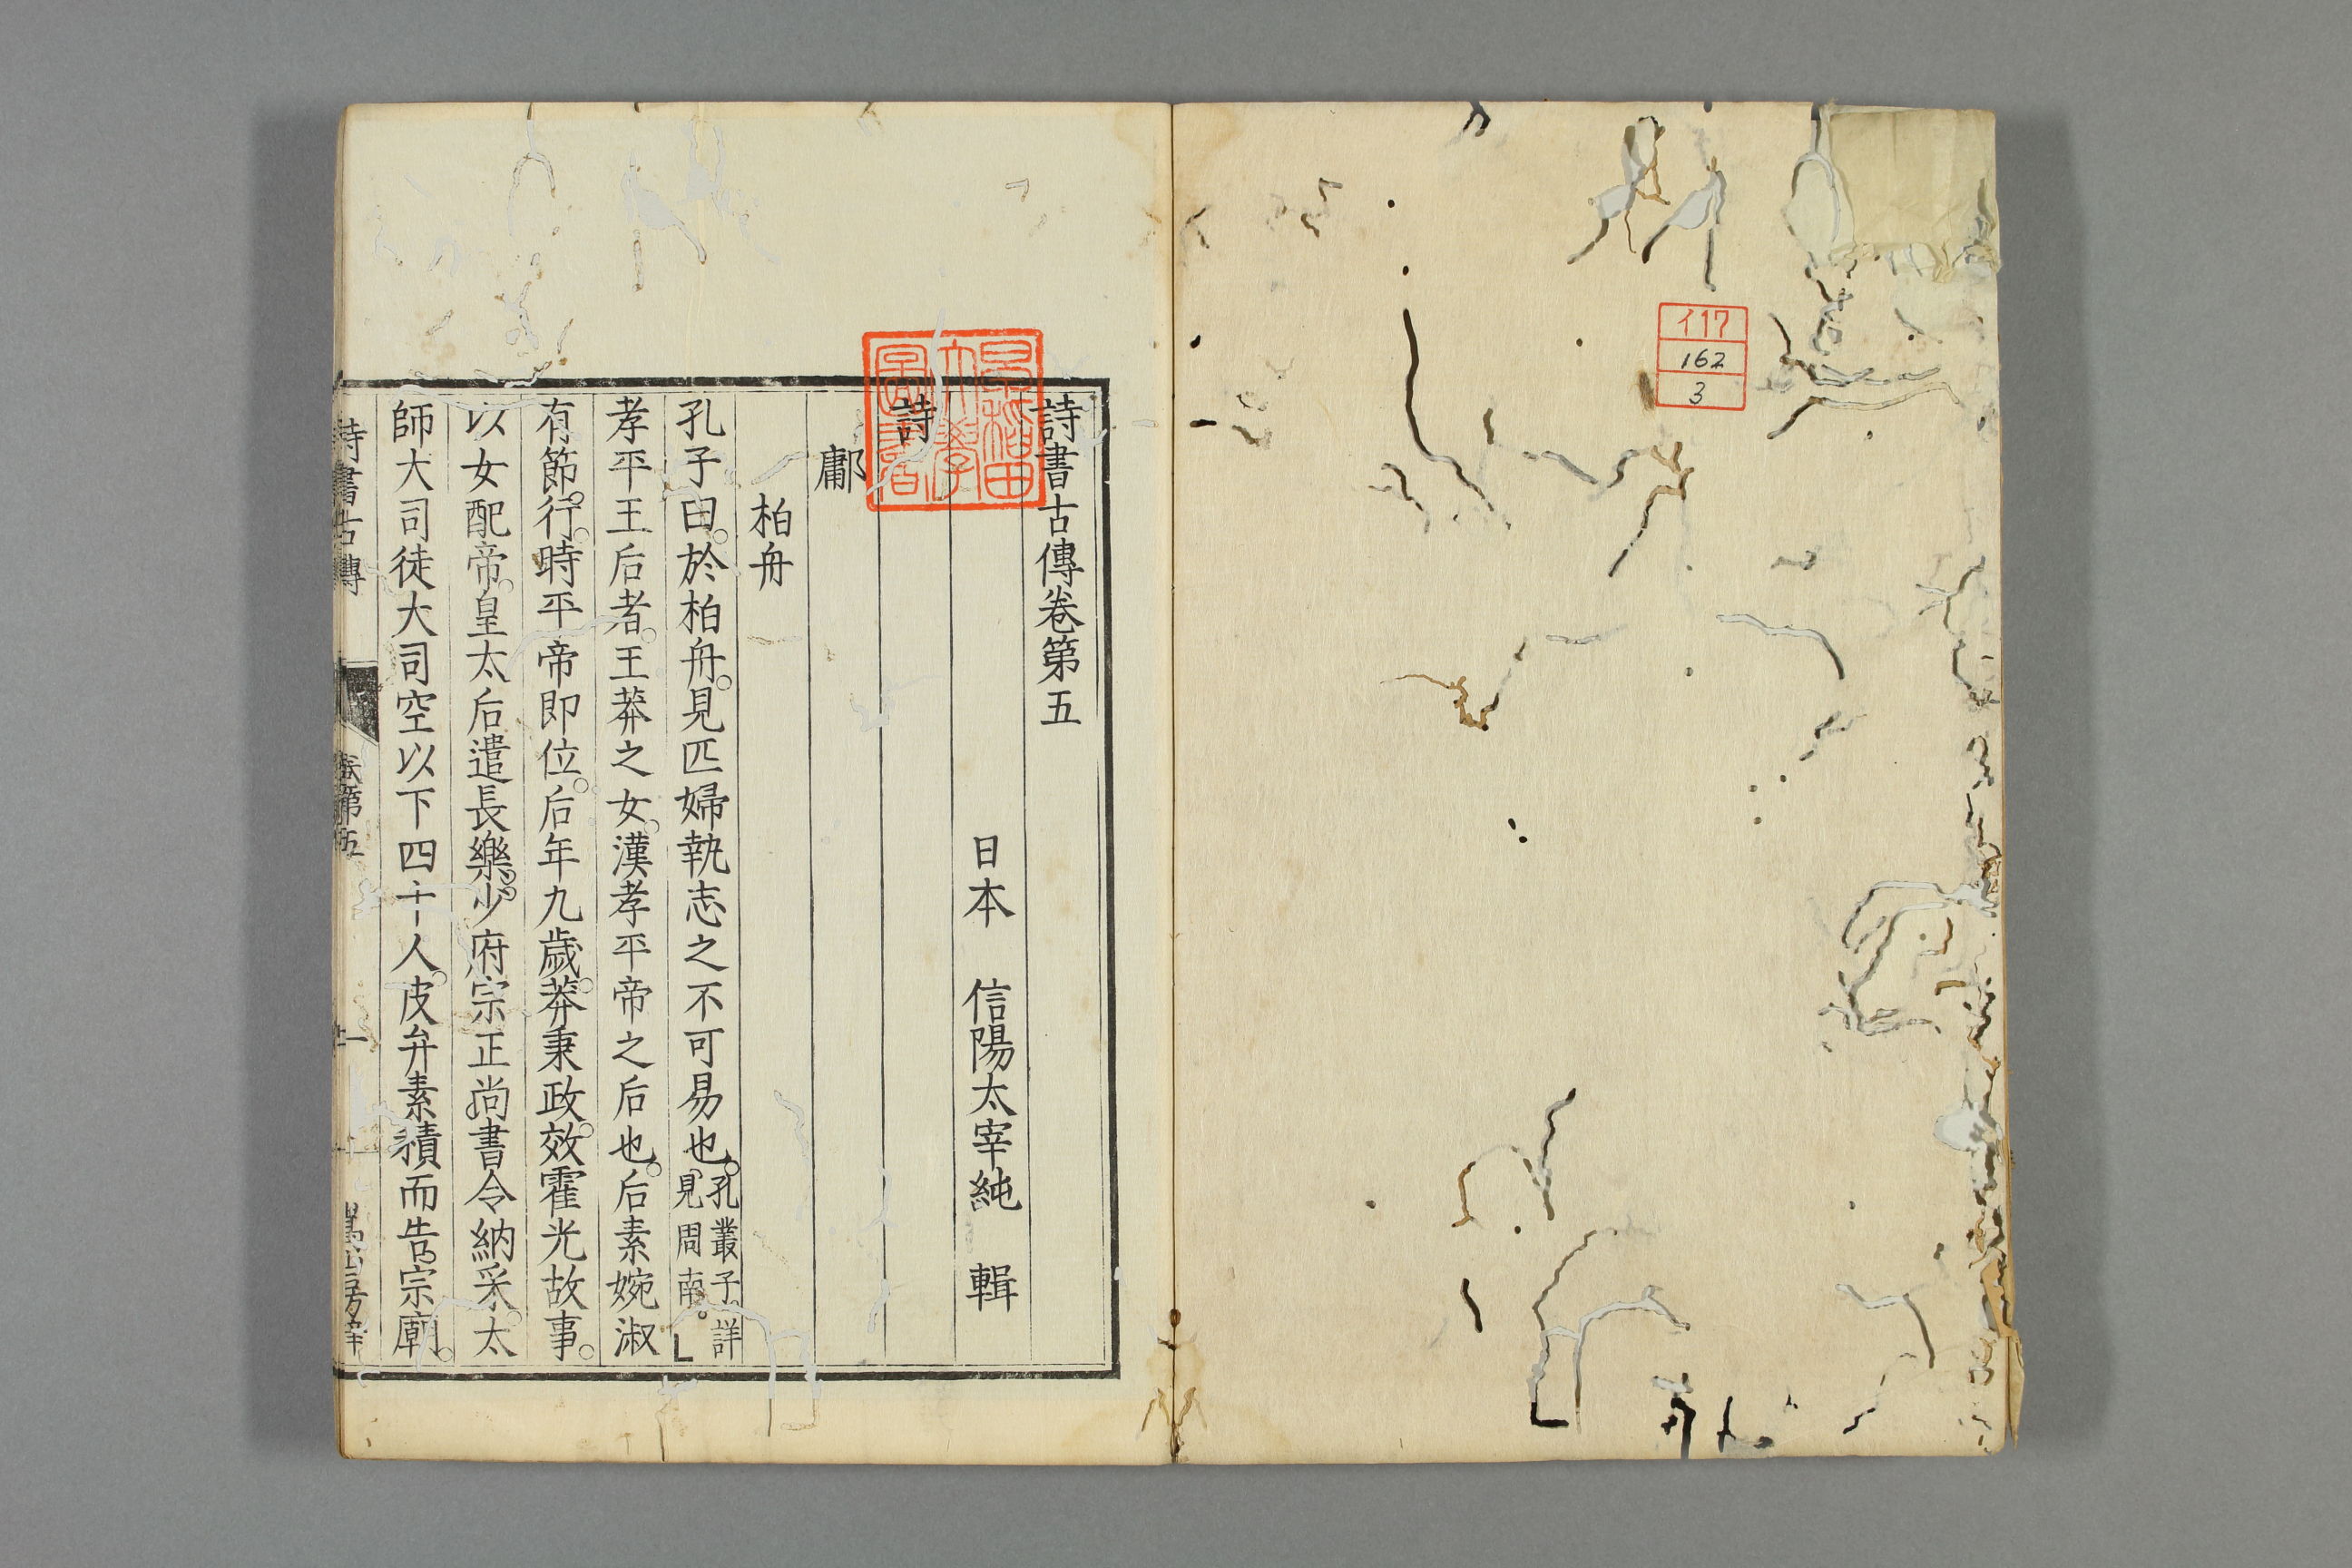 イ17
162
3
早稲田
大學
圖書
詩書古傳卷第五
日本　信陽太宰純　輯
詩
鄘
柏舟
孔子曰。於柏舟。見匹婦執志之不可易也。孔叢子。詳見周南。
孝平王后者。王莽之女。漢孝平帝之后也。后素婉淑
有節行。時平帝即位。后年九歲。莽秉政。效霍光故事。
以女配帝。皇太后遣長樂。少府宗正尚書令納采。太
師大司徒大司空以下四十人。皮弁素積而告宗廟。
詩書古傳
卷第五
一